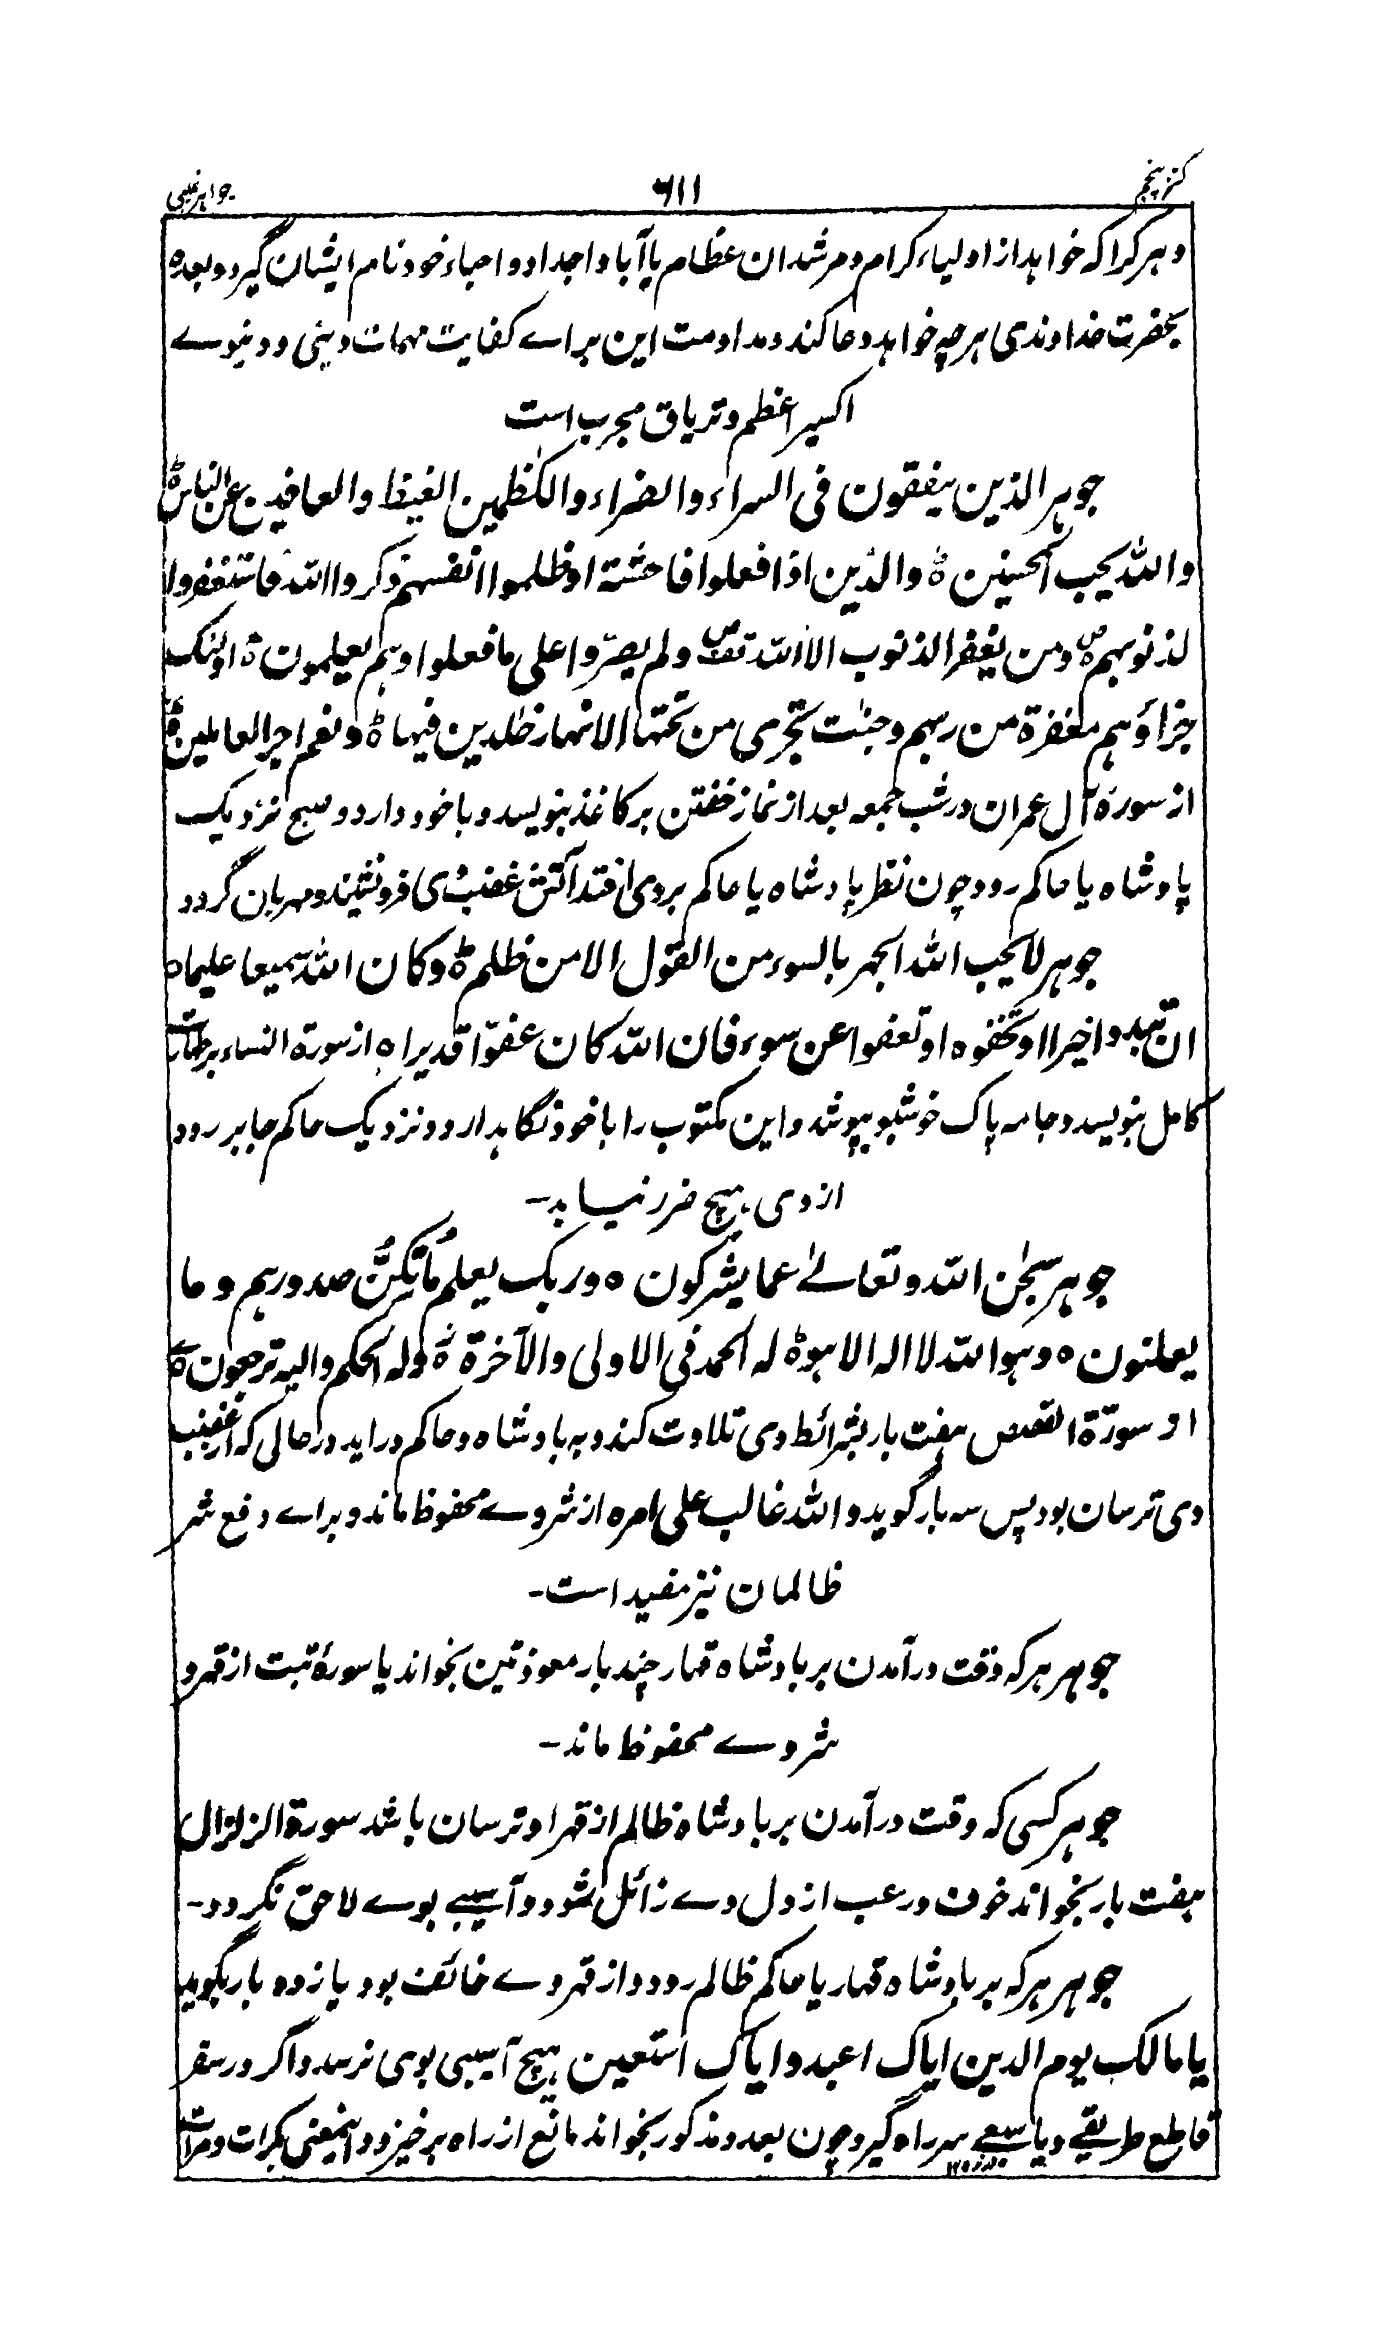 کنز پنجم ۶۱۱ جواہر غیبی
وہرکرا کہ خواہد از اولیاء کرام و مرشدان عظام یا آبا و اجداد و احباء خود نام ایشان گیرد و بعدہ
بحضرت خداوندی ہرچہ خواہد دعا کند و مداومت این براے کفایت مہمات دینی و دنیوے
اکسیر اعظم و تریاق مجرب است
جوہر الذین ینفقون فی السراء والضراء والکٰظمین الغیظ والعافین عن الناس ط
واللہ یحب المحسنین ہ والذین اذا فعلوا فاحشۃ او ظلموا انفسہم ذکروا اللہ فاستغفروا
لذنوبہم ص ومن یغفر الذنوب الا اللہ قف ولم یصرّوا علی ما فعلوا وہم یعلمون ہ اولٰئک
جزاؤہم مغفرۃ من ربہم وجنٰت تجری من تحتہا الانہار خٰلدین فیہا ط ونعم اجر العاملین ہ
از سورۂ آل عمران در شب جمعہ بعد از نماز خفتن بر کاغذ بنویسد و با خود دارد و صبح نزدیک
پادشاہ یا حاکم رود چون نظر پادشاہ یا حاکم بروی افتد آتش غضب وی فرو نشیند و مہربان گردد
جوہر لا یحب اللہ الجہر بالسوء من القول الا من ظلم ط وکان اللہ سمیعا علیما ہ
ان تبدوا خیرا او تخفوہ او تعفوا عن سوء فان اللہ کان عفوّا قدیرا ہ از سورۃ النساء بر طہارت
کامل بنویسد و جامہ پاک خوشبو بپوشد و این مکتوب را با خود نگاہدارد و نزدیک حاکم جابر رود
از وی ہیچ ضرر نیابد۔
جوہر سبحٰن اللہ وتعالےٰ عما یشرکون ہ وربک یعلم مُا تکنُّ صدورہم و ما
یعلنون ہ وہو اللہ لا الہ الا ہو ط لہ الحمد فی الاولی والآخرۃ ز ولہ الحکم والیہ ترجعون ہ
از سورۃ القصص ہفت بار بشرائط وی تلاوت کند و بہ بادشاہ و حاکم دراید در حالی کہ از غضب
وی ترسان بود پس سہ بار گوید واللہ غالب علی امرہ از شر وے محفوظ ماند و براے دفع شر
ظالمان نیز مفید است۔
جوہر ہرکہ وقت درآمدن بر بادشاہ قہار چند بار معوذتین بخواند یا سورۂ تبت از قہر و
شر وے محفوظ ماند۔
جوہر کسی کہ وقت درآمدن بر بادشاہ ظالم از قہر او ترسان باشد سورۃ الزلزال
ہفت بار بخواند خوف و رعب از دل وے زائل شود و آسیبے بوے لاحق نگردد۔
جوہر ہرکہ بر بادشاہ قہار یا حاکم ظالم رود و از قہر وے خائف بود یازدہ بار بگوید
یا مالک یوم الدین ایاک اعبد وایاک استعین ہیچ آسیبی بوی نرسد و اگر در سفر
قاطع طریقے و یا سبعے سر راہ گیرد چون بعدد مذکور بخواند مانع از راہ برخیزد و اینمعنی بکرات و مرات